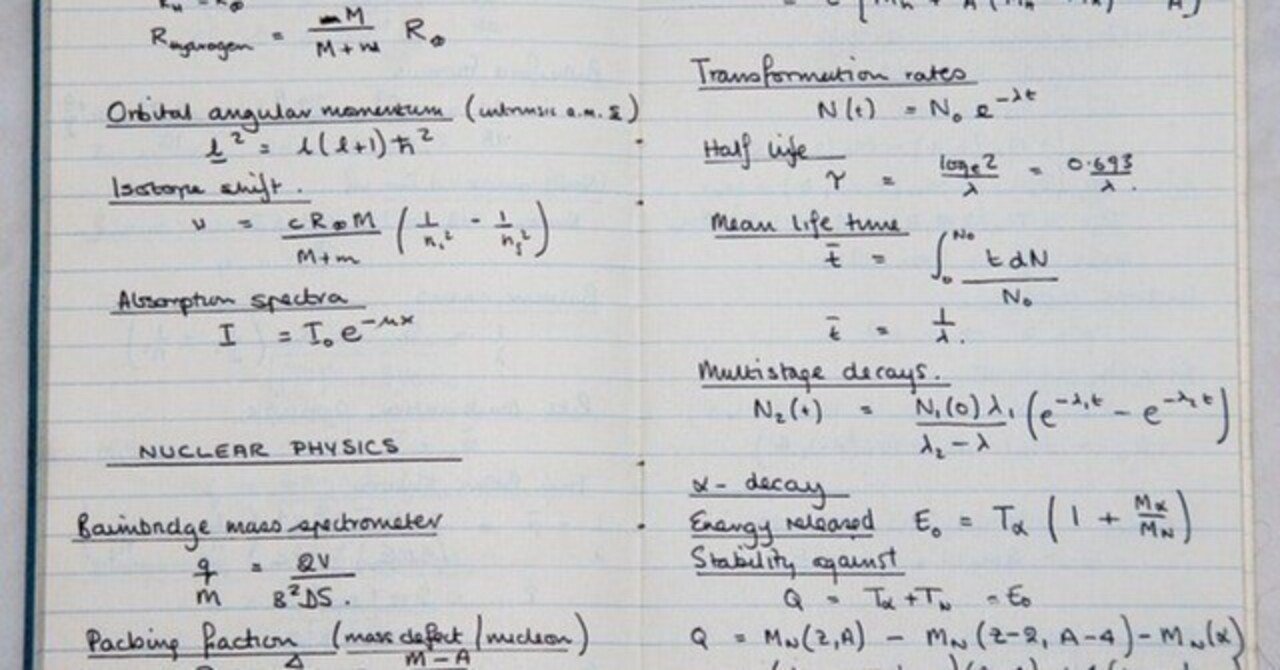 R hydrogen = M / M + m R∞
Orbital angular momentum (intrinsic a.m. s)
l² = l(l+1)ħ²
Isotope shift.
ν = cR∞M / M+m (1/nᵢ² - 1/nⱼ²)
Absorption spectra
I = I₀e^-μx
NUCLEAR PHYSICS
Bainbridge mass spectrometer
q/m = 2V / B²DS.
Packing fraction (mass defect / nucleon)
Δ M - A
Transformation rates
N(t) = N₀ e^-λt
Half life
τ = logₑ2 / λ = 0.693 / λ.
Mean life time
t̄ = ∫₀^N₀ t dN / N₀
t̄ = 1/λ.
Multistage decays.
N₂(t) = N₁(0)λ₁ / λ₂ - λ (e^-λ₁t - e^-λ₂t)
α - decay
Energy released E₀ = Tα (1 + Mα/MN)
Stability against
Q = Tα + TN = E₀
Q = MN(Z,A) - MN(Z-2, A-4) - MN(α)